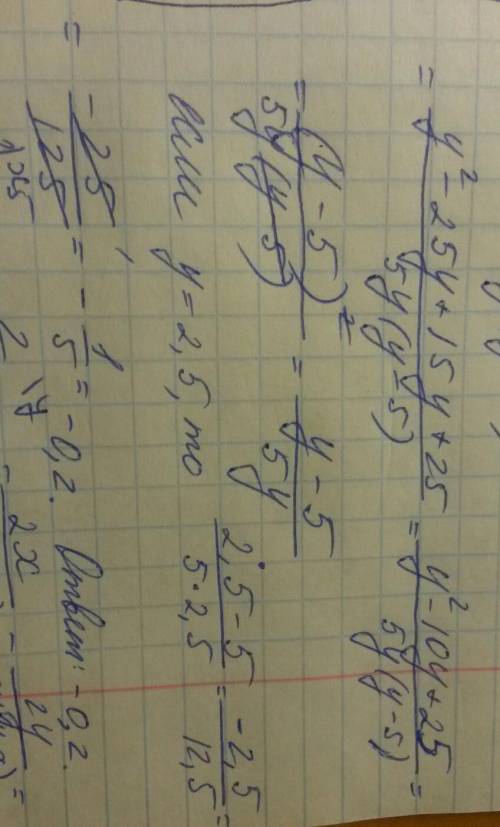 = (y² - 25y + 15y + 25) / (5y(y - 5)) = (y² - 10y + 25) / (5y(y - 5)) =
= (y - 5)² / (5y(y - 5)) = (y - 5) / (5y)
Если y = 2,5, то (2,5 - 5) / (5 · 2,5) = (-2,5) / (12,5) =
= (-25) / (125) = - 1/5 = -0,2. Ответ: -0,2.
2 y - 2x - 24 =